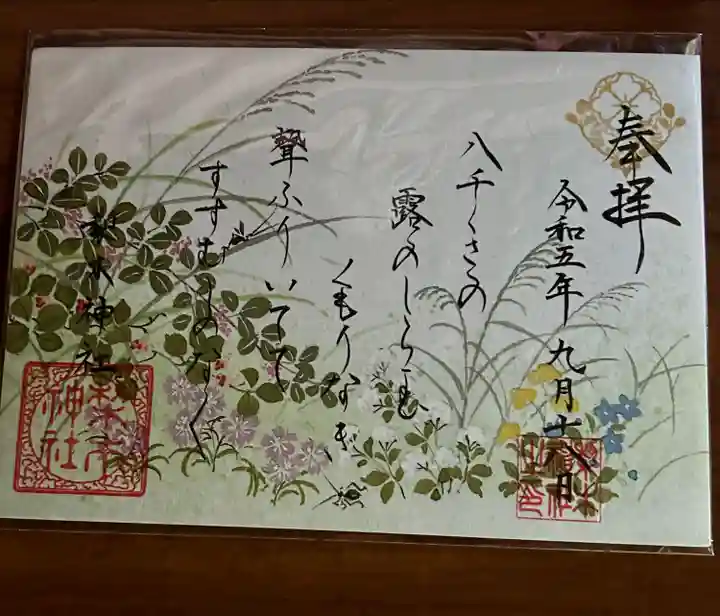 奉拝
令和五年九月十八日
八千くさの
露のしら
くもりなき
聲ふりいてて
すすむしのなく
梨木神社
梨木神社